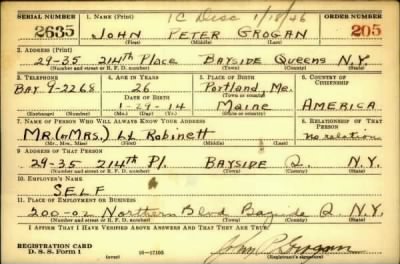 SERIAL NUMBER 1. NAME (Print) 1C Disc 1/18/46 ORDER NUMBER
2635 JOHN PETER GROGAN 205
(First) (Middle) (Last)
2. ADDRESS (Print)
29-35 214th Place BAYSIDE Queens N.Y.
(Number and street or R. F. D. number) (Town) (County) (State)
3. TELEPHONE 4. AGE IN YEARS 5. PLACE OF BIRTH 6. COUNTRY OF CITIZENSHIP
BAY. 9-2268 26 Portland, Me.
DATE OF BIRTH (Town or county)
1-29-14 Maine AMERICA
(Exchange) (Number) (Mo.) (Day) (Yr.) (State or country)
7. NAME OF PERSON WHO WILL ALWAYS KNOW YOUR ADDRESS 8. RELATIONSHIP OF THAT PERSON
MR. (&MRS.) Robinett no relation
(Mr., Mrs., Miss) (First) (Middle) (Last)
9. ADDRESS OF THAT PERSON
29-35 214th Pl. BAYSIDE Q. N.Y.
(Number and street or R. F. D. number) (Town) (County) (State)
10. EMPLOYER'S NAME
SELF
11. PLACE OF EMPLOYMENT OR BUSINESS
200-02 Northern Blvd Bayside Q. N.Y.
(Number and street or R. F. D. number) (Town) (County) (State)
I AFFIRM THAT I HAVE VERIFIED ABOVE ANSWERS AND THAT THEY ARE TRUE.
REGISTRATION CARD
D. S. S. Form 1 (over) 16-17105 John P. Grogan